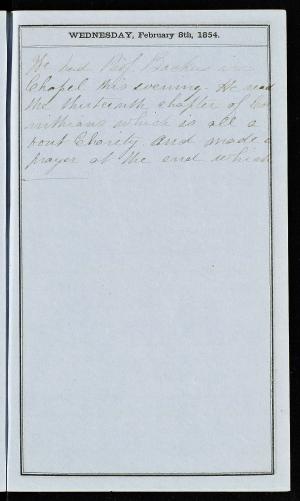 WEDNESDAY, February 8th, 1854.
We had Prof. Backus in
Chapel this evening. He read
the thirteenth chapter of Cor
inthians which is all a
bout Charity. And made a
prayer at the end which